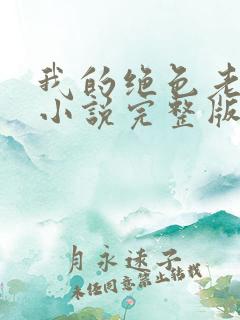 我的绝色老
小说完整版
月永速子
未经同意禁止转载